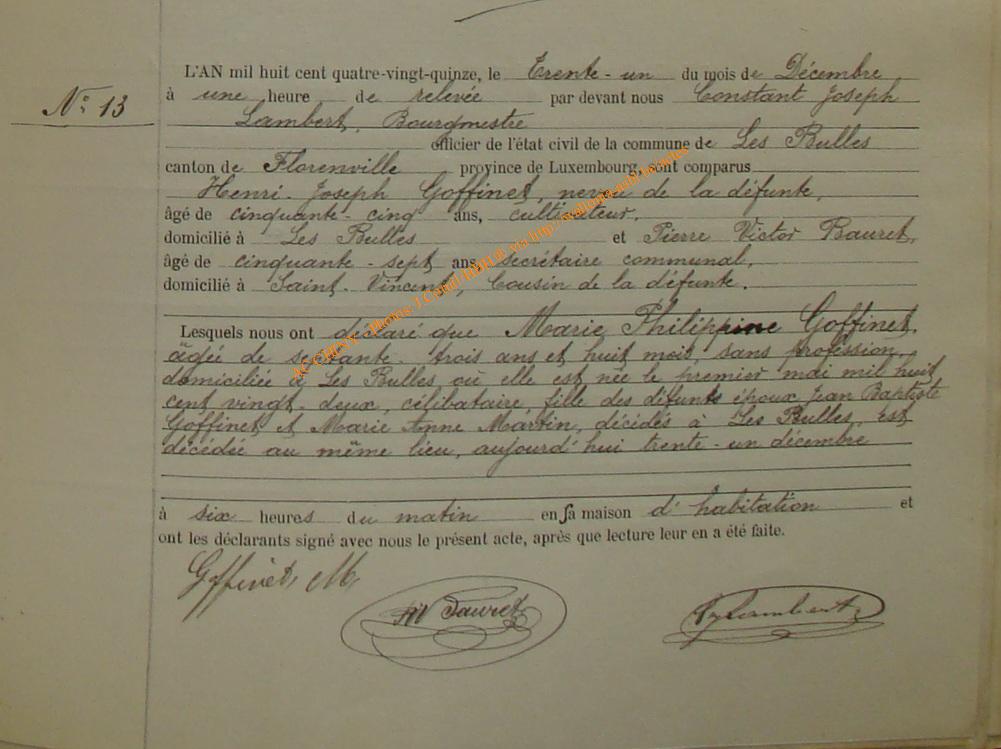 L'AN mil huit cent quatre-vingt-quinze, le Trente-un du mois de Décembre
N° 13
à une heure de relevée par devant nous Constant Joseph
Lambert, Bourgmestre
officier de l'état civil de la commune de Les Bulles
canton de Florenville province de Luxembourg, sont comparus
Henri-Joseph Goffinet, neveu de la défunte,
âgé de cinquante-cinq ans, cultivateur,
domicilié à Les Bulles et Pierre Victor Bauret,
âgé de cinquante-sept ans, secrétaire communal,
domicilié à Saint-Vincent, Cousin de la défunte.
Lesquels nous ont déclaré que Marie Philippine Goffinet,
âgée de septante-trois ans et huit mois, sans profession,
domiciliée à Les Bulles où elle est née le premier mai mil huit
cent vingt-deux, célibataire, fille des défunts époux Jean Baptiste
Goffinet et Marie Anne Martin, décédés à Les Bulles, est
décédée au même lieu, aujourd'hui trente-un décembre
à six heures du matin en sa maison d'habitation et
ont les déclarants signé avec nous le présent acte, après que lecture leur en a été faite.
Goffinet, M.
Bauret
Lambert